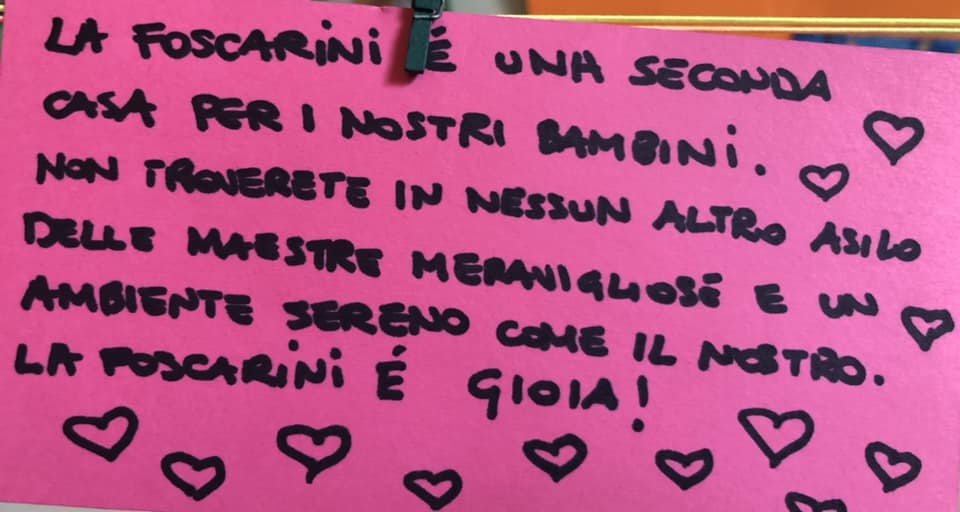 LA FOSCARINI É UNA SECONDA
CASA PER I NOSTRI BAMBINI.
NON TROVERETE IN NESSUN ALTRO ASILO
DELLE MAESTRE MERAVIGLIOSE E UN
AMBIENTE SERENO COME IL NOSTRO.
LA FOSCARINI É GIOIA!